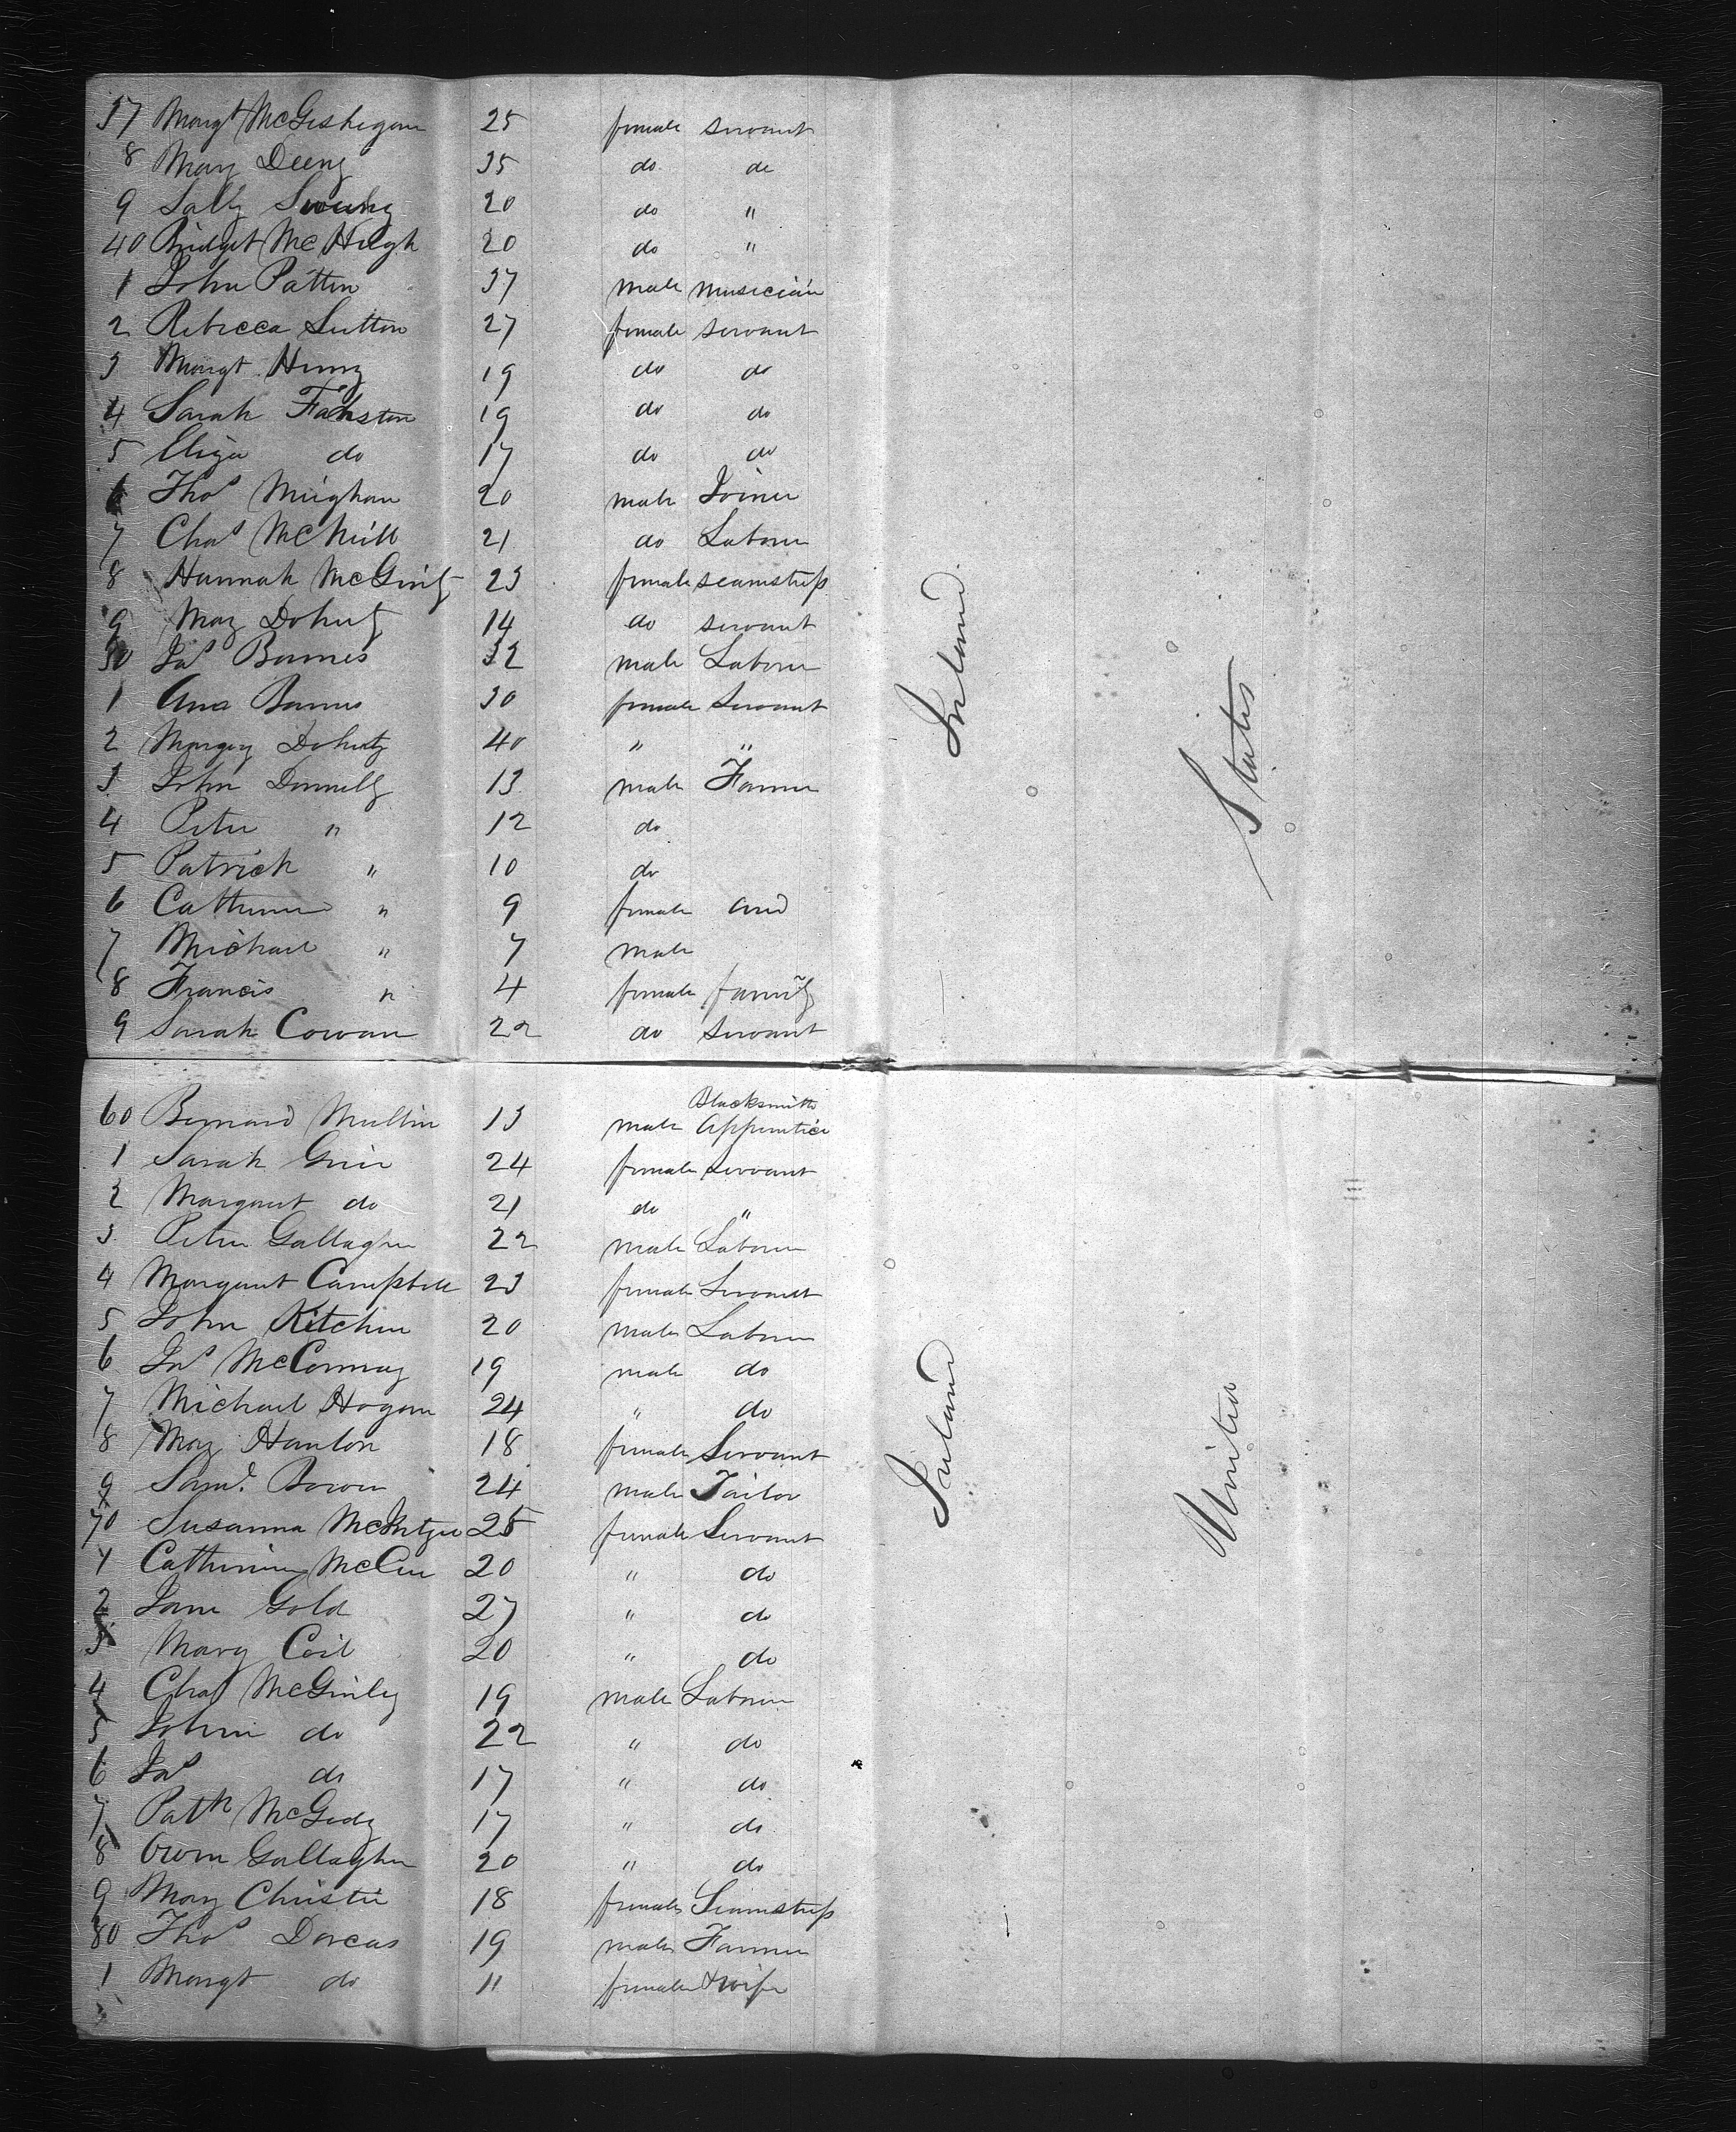 37 Margt McGeshegan 25 female servant
8 Mary Deeny 35 do do
9 Sally Sweeny 20 do "
40 Bridget McHugh 20 do "
1 John Patten 37 male musician
2 Rebecca Sutton 27 female servant
3 Margt Henry 19 do do
4 Sarah 19 do do
5 Eliza do 17 do do
6 Thos Meighan 20 male Joiner
7 Chas McNeill 21 do Laborer
8 Hannah McGinty 23 female seamstress
9 Mary Doherty 14 do servant
50 Jas Barnes 32 male Laborer
1 Ann Barnes 30 female Servant
2 Margery Doherty 40 " "
3 John Donnelly 13 male Farmer
4 Peter " 12 do
5 Patrick " 10 do
6 Catherine " 9 female and
7 Michael " 7 male
8 Francis " 4 female family
9 Sarah Cowan 22 do servant
Ireland
States
60 Bernard Mullin 13 male Blacksmith Apprentice
1 Sarah Grier 24 female servant
2 Margaret do 21 do "
3 Peter Gallagher 22 male Laborer
4 Margaret Campbell 23 female Servant
5 John Kitchen 20 male Laborer
6 Jas McConway 19 male do
7 Michael Hogan 24 " do
8 Mary Hanlon 18 female Servant
9 Saml. Bowen 24 male Tailor
70 Susanna McIntyre 25 female Servant
1 Catherine McCue 20 " do
2 Jane Gold 27 " do
3 Mary Coil 20 " do
4 Chas McGinley 19 male Laborer
5 John do 22 " do
6 Jas do 17 " do
7 Patk 17 " do
8 Owen Gallagher 20 " do
9 Mary Christie 18 female Seamstress
80 Thos Dorcas 19 male Farmer
1 Margt do 11 female & wife
Ireland
United